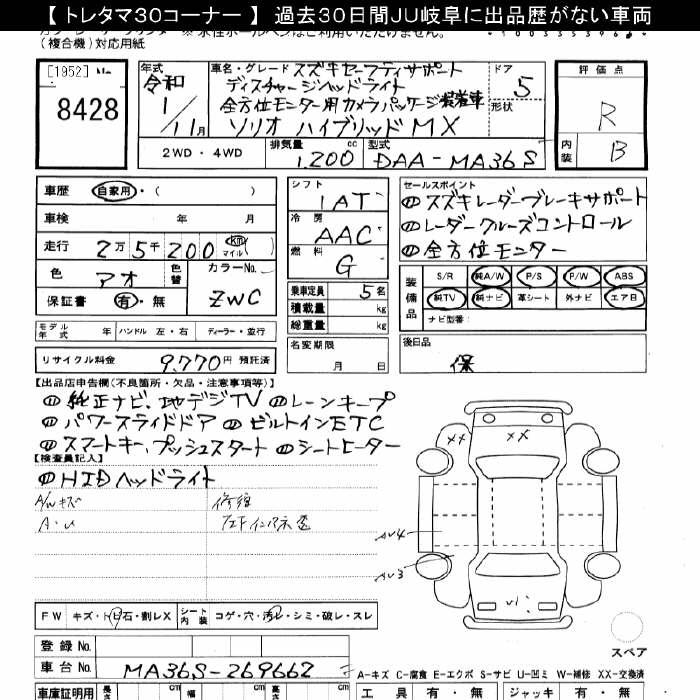 【 トレタマ30コーナー 】 過去30日間JU岐阜に出品歴がない車両
(複合機)対応用紙
[1952]
8428
年式 令和 1/11月
車名・グレード スズキセーフティサポート
ディスチャージヘッドライト
全方位モニター用カメラパッケージ装着車
ソリオ ハイブリッド MX
ドア 5
形状
評価点
R
内装 B
2WD・4WD
排気量 1,200 cc
型式 DAA-MA36S
車歴 自家用・( )
車検 年 月
走行 2万5千200 km マイル
色 アオ 色替
カラーNo. ZWC
保証書 有・無
シフト IAT
冷房 AAC
燃料 G
乗車定員 5名
積載量 kg
総重量 kg
セールスポイント
① スズキレーダーブレーキサポート
① レーダークルーズコントロール
① 全方位モニター
装備品
S/R 純A/W P/S P/W ABS
純TV 純ナビ 革シート 外ナビ エア日
ナビ型番:
モデル年式 年 ハンドル 左・右 ディーラー・並行
リサイクル料金 9,770円 預託済
名変期限 月 日
後日品
保
【出品店申告欄(不良箇所・欠品・注意事項等)】
① 純正ナビ、地デジTV ① レーンキープ
① パワースライドドア ① ビルトインETC
① スマートキー、プッシュスタート ① シートヒーター
【検査員記入】
① HIDヘッドライト
A/Wキズ
A・U
修復
XX
XX
AU4
AU3
U1
FW キズ・トビ石・割レX
シート内装 コゲ・穴・汚レ・シミ・破レ・スレ
スペア
登録No.
車台No. MA36S-269662
A-キズ C-腐食 E-エクボ S-サビ U-凹ミ W-補修 XX-交換済
車庫証明用 cm 幅 cm 高さ cm
工具 有・無 ジャッキ 有・無